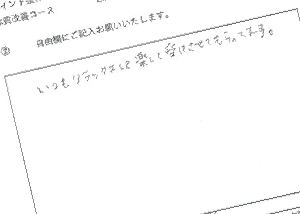 イント
体質改善コース
② 自由欄にご記入お願いいたします。
いつもリラックスして楽しく受けさせてもらってます。